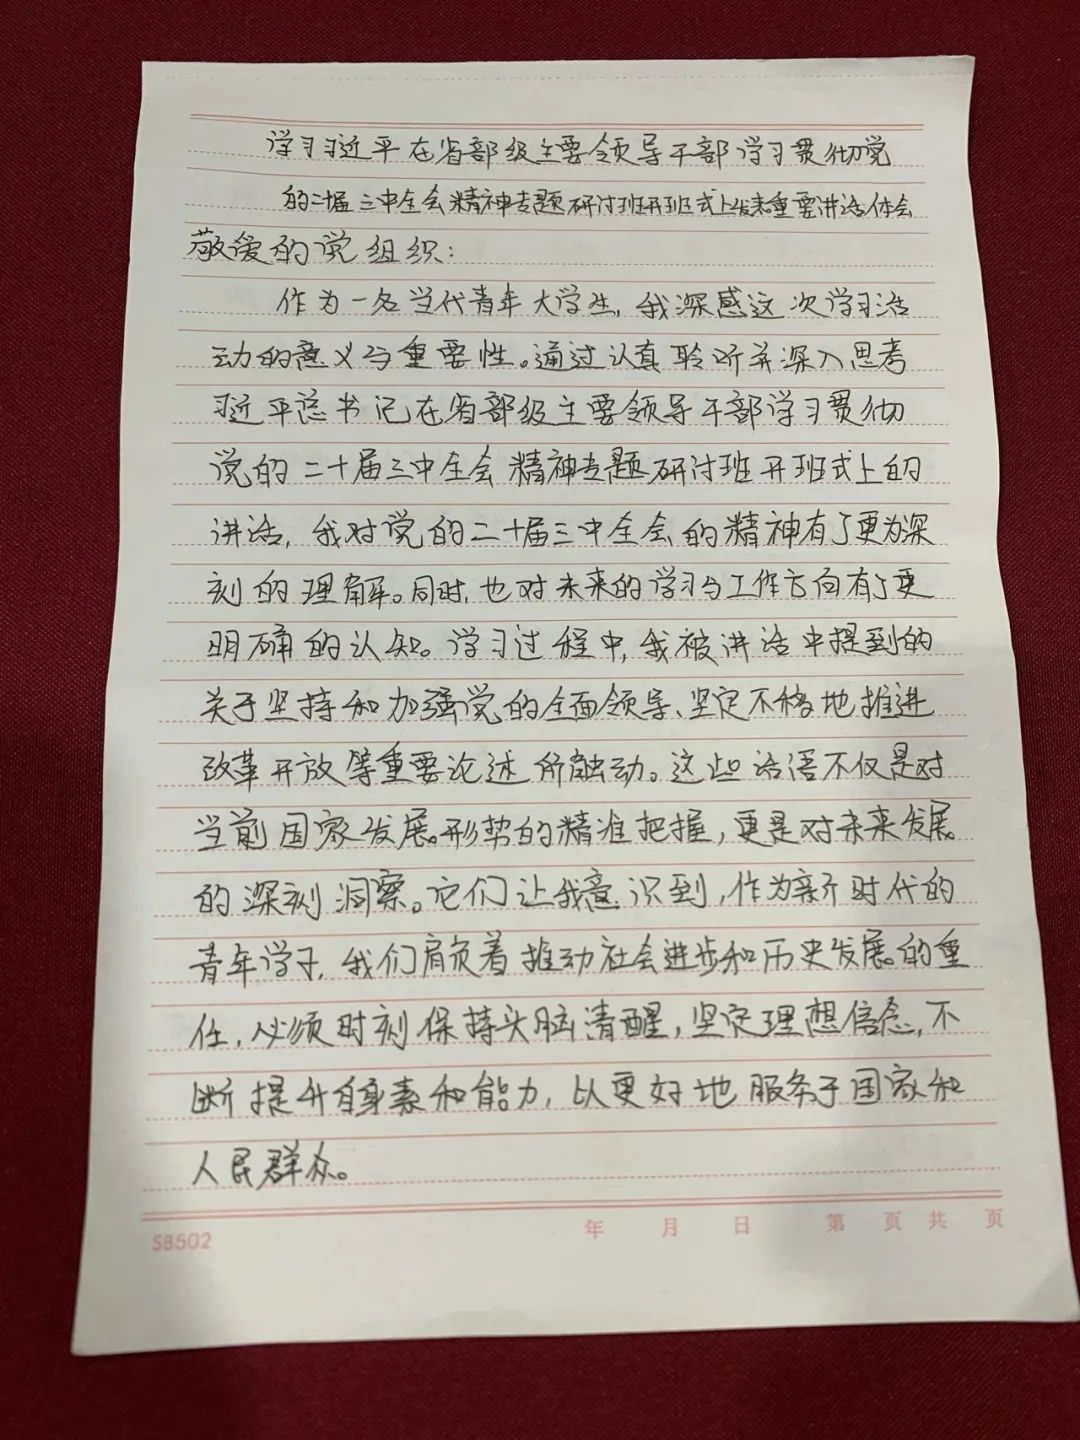 学习习近平在省部级主要领导干部学习贯彻党
的二十届三中全会精神专题研讨班开班式上发表重要讲话体会
敬爱的党组织:
作为一名当代青年大学生,我深感这次学习活
动的意义与重要性。通过认真聆听并深入思考
习近平总书记在省部级主要领导干部学习贯彻
党的二十届三中全会精神专题研讨班开班式上的
讲话,我对党的二十届三中全会的精神有了更为深
刻的理解。同时,也对未来的学习与工作方向有了更
明确的认知。学习过程中,我被讲话中提到的
关于坚持和加强党的全面领导、坚定不移地推进
改革开放等重要论述所触动。这些话语不仅是对
当前国家发展形势的精准把握,更是对未来发展
的深刻洞察。它们让我意识到,作为新时代的
青年学子,我们肩负着推动社会进步和历史发展的重
任,必须时刻保持头脑清醒,坚定理想信念,不
断提升自身素和能力,以更好地服务于国家和
人民群众。
58502 年 月 日 第 页 共 页